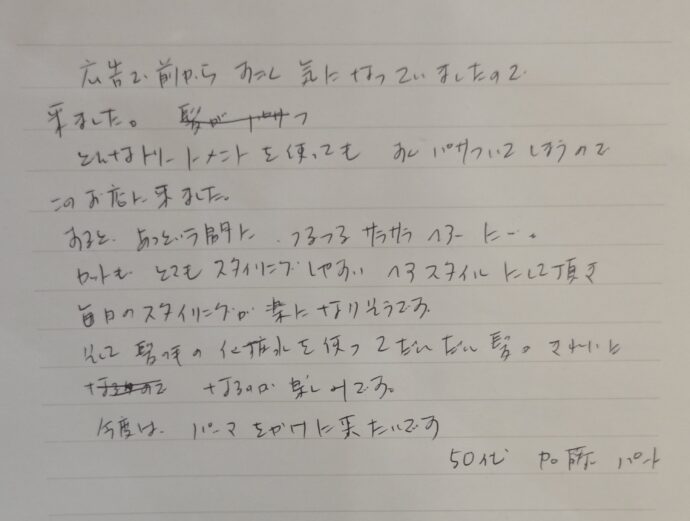 広告で前から少し気になっていましたので
来ました。髪がパサつ
どんなトリートメントを使っても少しパサついてしまうので
このお店に来ました。
すると、あっという間に、つるつるサラサラヘアーに…。
カットもとてもスタイリングしやすいヘアスタイルにして頂き
毎日のスタイリングが楽になりそうです。
そして髪の毛の化粧水を使ってだんだん髪がキレイに
なるので なるのが楽しみです。
今度は、パーマをかけに来たいです
50代 加藤 パート